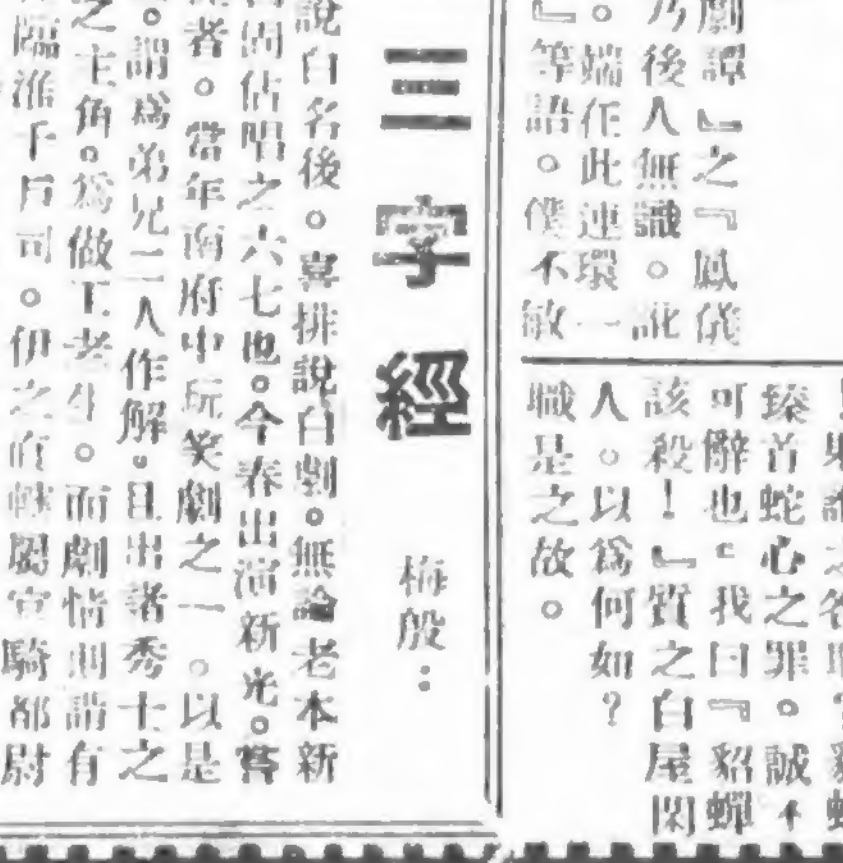 劇譚』之『鳳儀
乃後人無識。訛
。端在此連環一
』等語。僕不敏
臻首蛇心之罪。誠不
可辭也。我曰『貂蟬
該殺!』質之白屋閑
人。以爲何如?
職是之故。
三字經
梅殷:
說白名後。喜排說白劇。無論老本新
佔唱之六七也。今春出演新光。嘗
者。當年南府中玩笑劇之一。以是
。謂爲弟兄二人作解。且出諸秀士之
之主角。爲做工老生。而劇情則謂有
臨淮千戶司。伊之直轄屬官騎都尉